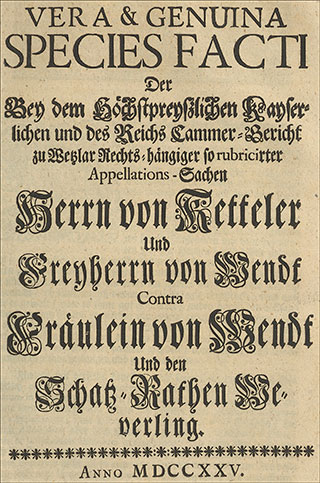 VERA & GENUINA
SPECIES FACTI
Der
Bey dem Höchstpreyßlichen Kayser-
lichen und des Reichs Cammer-Gericht
zu Wetzlar Rechts-hängiger so rubricirter
Appellations-Sachen
Herrn von Ketteler
Und
Freyherrn von Wendt
Contra
Fräulein von Wendt
Und den
Schatz-Rathen We-
verling.
ANNO MDCCXXV.